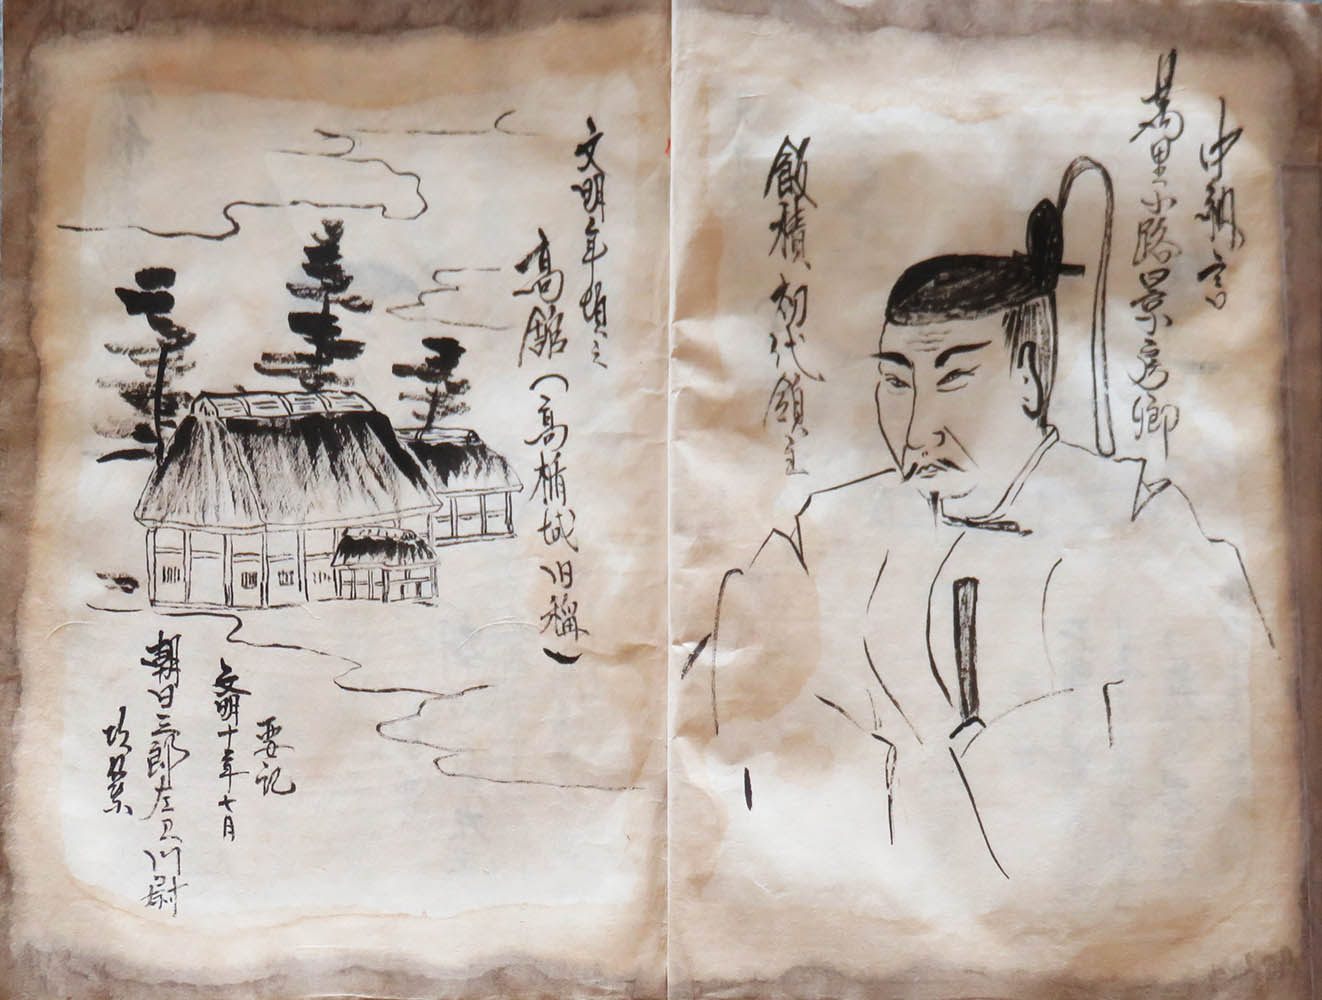 中納言
萬里小路景房卿
飯積初代領主
文明年頃之
高舘(高楯城旧稱)
要記
文明十三年七月
朝日三郎左卫门尉